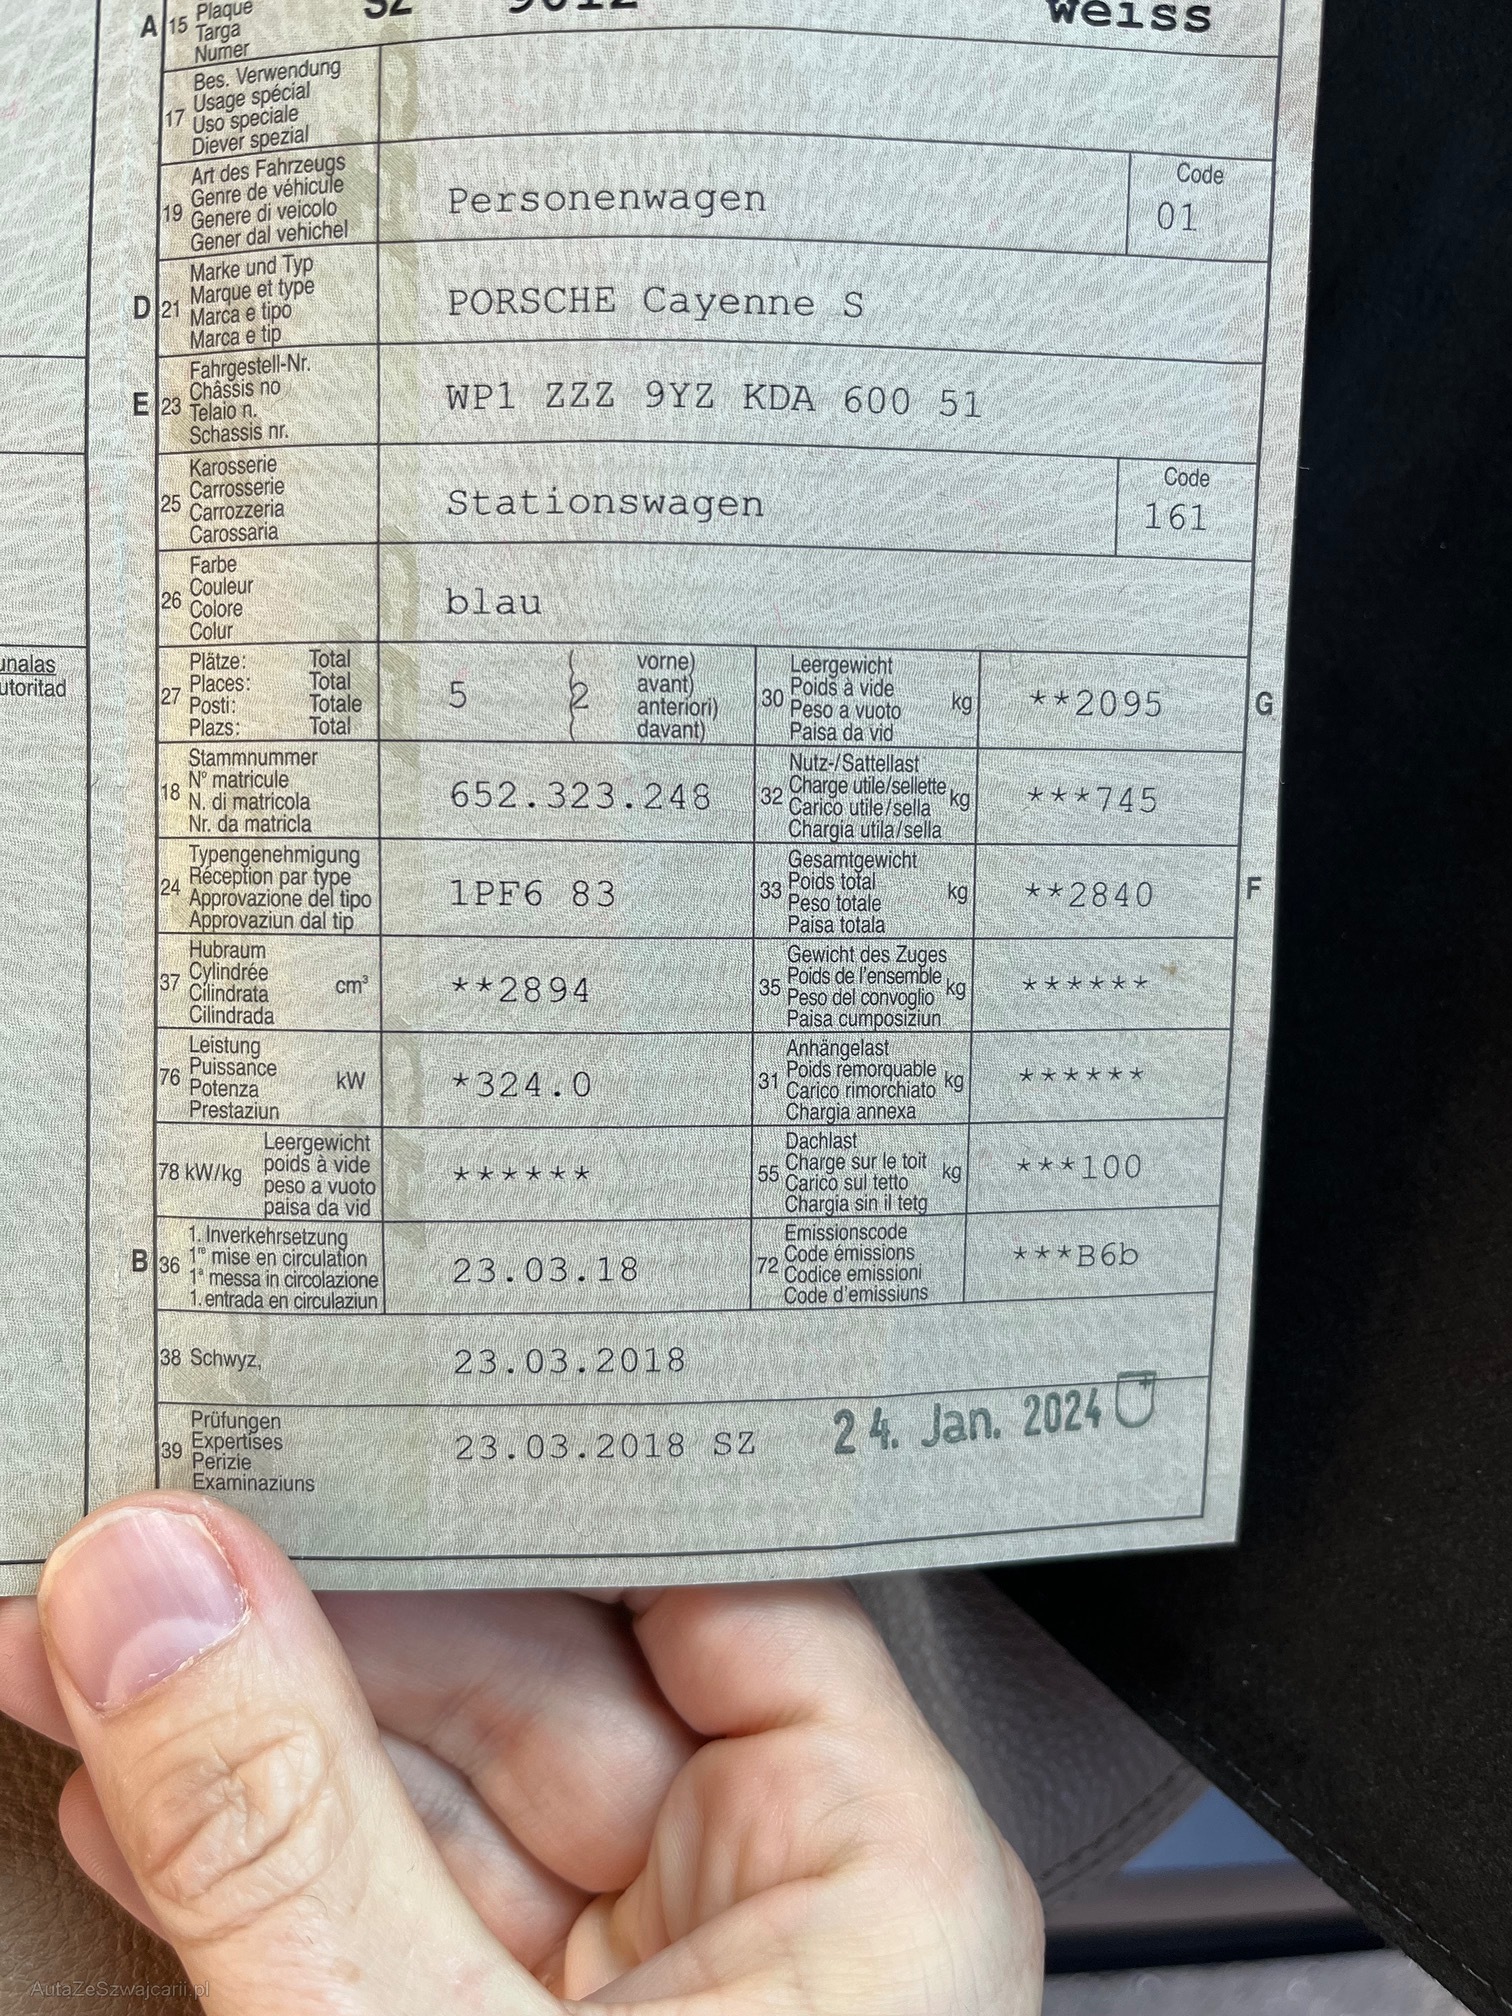 A 15 Plaque
Targa
Numer
SZ
weiss
17 Bes. Verwendung
Usage spécial
Uso speciale
Diever spezial
19 Art des Fahrzeugs
Genre de véhicule
Genere di veicolo
Gener dal vehichel
Personenwagen
Code
01
D 21 Marke und Typ
Marque et type
Marca e tipo
Marca e tip
PORSCHE Cayenne S
E 23 Fahrgestell-Nr.
Châssis no
Telaio n.
Schassis nr.
WP1 ZZZ 9YZ KDA 600 51
25 Karosserie
Carrosserie
Carrozzeria
Carossaria
Stationswagen
Code
161
26 Farbe
Couleur
Colore
Colur
blau
27 Plätze: Total
Places: Total
Posti: Totale
Plazs: Total
5 2
vorne)
avant)
anteriori)
davant)
30 Leergewicht
Poids à vide
Peso a vuoto
Paisa da vid
kg
**2095
G
18 Stammnummer
N° matricule
N. di matricola
Nr. da matricla
652.323.248
32 Nutz-/Sattellast
Charge utile/sellette
Carico utile/sella
Chargia utila/sella
kg
***745
24 Typengenehmigung
Réception par type
Approvazione del tipo
Approvaziun dal tip
1PF6 83
33 Gesamtgewicht
Poids total
Peso totale
Paisa totala
kg
**2840
F
37 Hubraum
Cylindrée
Cilindrata
Cilindrada
cm³
**2894
35 Gewicht des Zuges
Poids de l'ensemble
Peso del convoglio
Paisa cumposiziun
kg
******
76 Leistung
Puissance
Potenza
Prestaziun
kW
*324.0
31 Anhängelast
Poids remorquable
Carico rimorchiato
Chargia annexa
kg
******
78 kW/kg
Leergewicht
poids à vide
peso a vuoto
paisa da vid
******
55 Dachlast
Charge sur le toit
Carico sul tetto
Chargia sin il tetg
kg
***100
B 36 1. Inverkehrsetzung
1re mise en circulation
1a messa in circolazione
1. entrada en circulaziun
23.03.18
72 Emissionscode
Code émissions
Codice emissioni
Code d'emissiuns
***B6b
38 Schwyz,
23.03.2018
39 Prüfungen
Expertises
Perizie
Examinaziuns
23.03.2018 SZ
24. Jan. 2024
unalas
utoritad
AutaZeSzwajcarii.pl